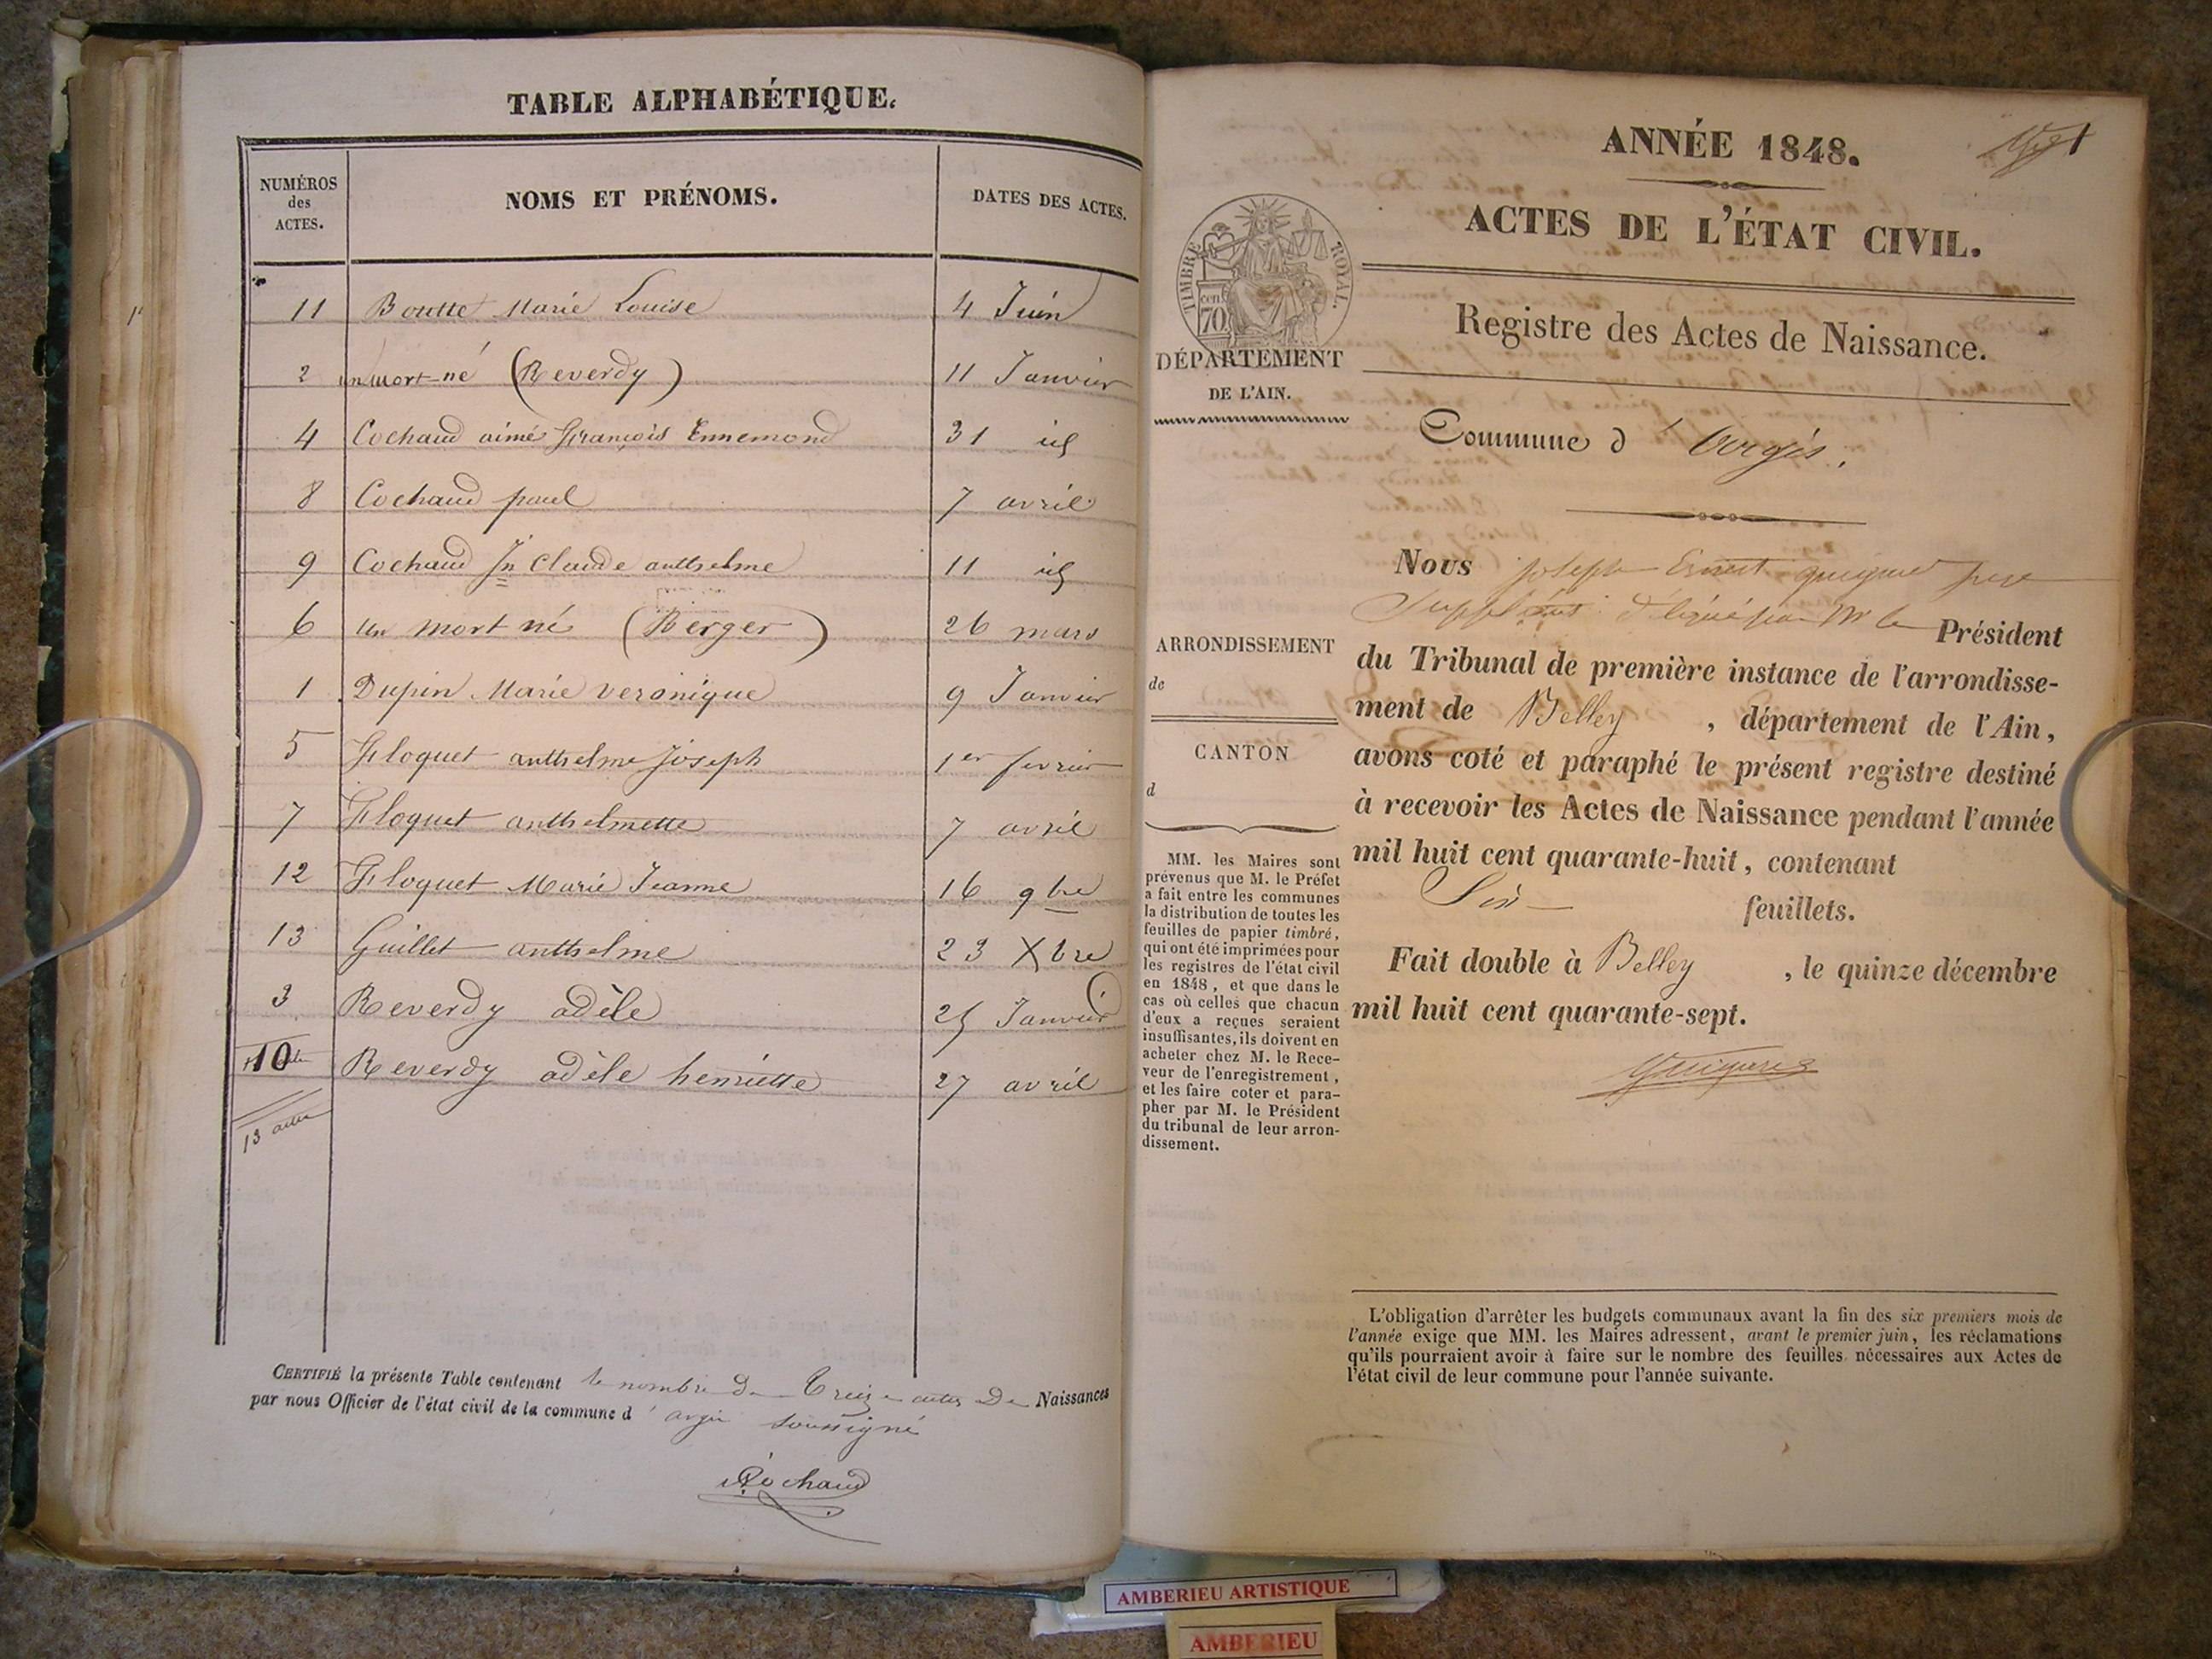 TABLE ALPHABÉTIQUE.
NUMÉROS des ACTES.
NOMS ET PRÉNOMS.
DATES DES ACTES.
11 Boutte Marie Louise 4 Juin
2 un mort-né (Reverdy) 11 Janvier
4 Cochaud aimé François Ennemond 31 id
8 Cochaud paul 7 avril
9 Cochaud Jn Claude anthelme 11 id
6 un mort né (Berger) 26 mars
1 Dupin Marie veronique 9 Janvier
5 Floquet anthelme Joseph 1er fevrier
7 Floquet anthelmette 7 avril
12 Floquet Marie Jeanne 16 9bre
13 Guillet anthelme 23 Xbre
3 Reverdy adèle 25 Janvier
10 Reverdy adèle henriette 27 avril
13 actes
CERTIFIÉ la présente Table contenant le nombre de treize actes De Naissances
par nous Officier de l'état civil de la commune d'argis soussigné
Cochaud
ANNÉE 1848.
ACTES DE L'ÉTAT CIVIL.
TIMBRE ROYAL.
cen
70
Registre des Actes de Naissance.
DÉPARTEMENT
DE L'AIN.
Commune d'Argis.
ARRONDISSEMENT
de
CANTON
d
MM. les Maires sont
prévenus que M. le Préfet
a fait entre les communes
la distribution de toutes les
feuilles de papier timbré,
qui ont été imprimées pour
les registres de l'état civil
en 1848, et que dans le
cas où celles que chacun
d'eux a reçues seraient
insuffisantes, ils doivent en
acheter chez M. le Rece-
veur de l'enregistrement,
et les faire coter et para-
pher par M. le Président
du tribunal de leur arron-
dissement.
Nous Joseph Ernest juge
Suppléant délégué par Mr le Président
du Tribunal de première instance de l'arrondisse-
ment de Belley, département de l'Ain,
avons coté et paraphé le présent registre destiné
à recevoir les Actes de Naissance pendant l'année
mil huit cent quarante-huit, contenant
Six feuillets.
Fait double à Belley, le quinze décembre
mil huit cent quarante-sept.
L'obligation d'arrêter les budgets communaux avant la fin des six premiers mois de
l'année exige que MM. les Maires adressent, avant le premier juin, les réclamations
qu'ils pourraient avoir à faire sur le nombre des feuilles nécessaires aux Actes de
l'état civil de leur commune pour l'année suivante.
AMBERIEU ARTISTIQUE
AMBERIEU